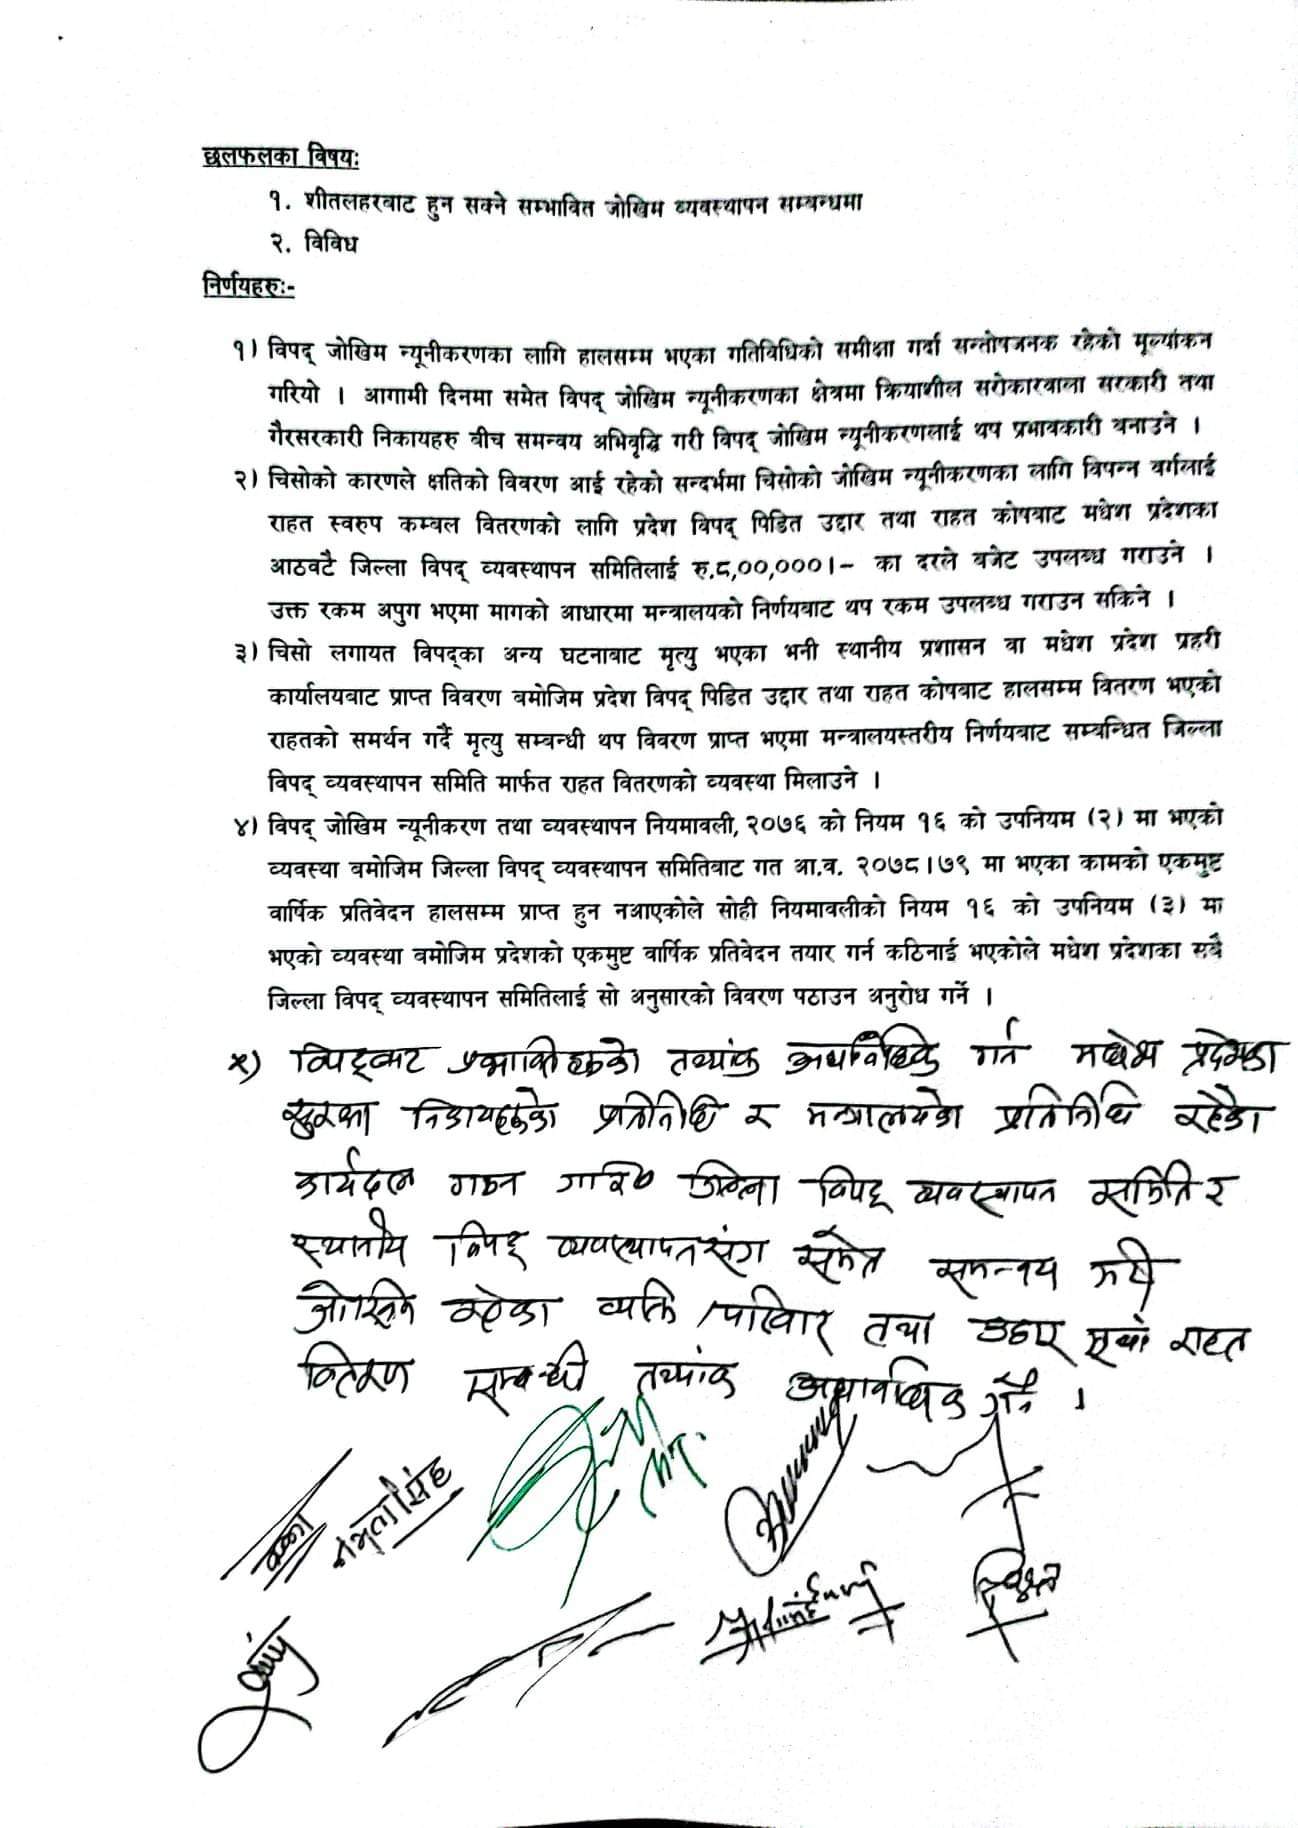 छलफलका विषयः
१. शीतलहरबाट हुन सक्ने सम्भावित जोखिम व्यवस्थापन सम्बन्धमा
२. विविध
निर्णयहरुः-
१) विपद् जोखिम न्यूनीकरणका लागि हालसम्म भएका गतिविधिको समीक्षा गर्दा सन्तोषजनक रहेको मूल्यांकन
गरियो । आगामी दिनमा समेत विपद् जोखिम न्यूनीकरणका क्षेत्रमा क्रियाशील सरोकारवाला सरकारी तथा
गैरसरकारी निकायहरु बीच समन्वय अभिवृद्धि गरी विपद् जोखिम न्यूनीकरणलाई थप प्रभावकारी बनाउने ।
२) चिसोको कारणले क्षतिको विवरण आई रहेको सन्दर्भमा चिसोको जोखिम न्यूनीकरणका लागि विपन्न वर्गलाई
राहत स्वरुप कम्बल वितरणको लागि प्रदेश विपद् पिडित उद्दार तथा राहत कोषबाट मधेश प्रदेशका
आठवटै जिल्ला विपद् व्यवस्थापन समितिलाई रु.८,००,०००।- का दरले बजेट उपलब्ध गराउने ।
उक्त रकम अपुग भएमा मागको आधारमा मन्त्रालयको निर्णयबाट थप रकम उपलब्ध गराउन सकिने ।
३) चिसो लगायत विपद्का अन्य घटनाबाट मृत्यु भएका भनी स्थानीय प्रशासन वा मधेश प्रदेश प्रहरी
कार्यालयबाट प्राप्त विवरण बमोजिम प्रदेश विपद् पिडित उद्दार तथा राहत कोषबाट हालसम्म वितरण भएको
राहतको समर्थन गर्दै मृत्यु सम्बन्धी थप विवरण प्राप्त भएमा मन्त्रालयस्तरीय निर्णयबाट सम्बन्धित जिल्ला
विपद् व्यवस्थापन समिति मार्फत राहत वितरणको व्यवस्था मिलाउने ।
४) विपद् जोखिम न्यूनीकरण तथा व्यवस्थापन नियमावली, २०७६ को नियम १६ को उपनियम (२) मा भएको
व्यवस्था बमोजिम जिल्ला विपद् व्यवस्थापन समितिबाट गत आ.व. २०७८।७९ मा भएका कामको एकमुष्ट
वार्षिक प्रतिवेदन हालसम्म प्राप्त हुन नआएकोले सोही नियमावलीको नियम १६ को उपनियम (३) मा
भएको व्यवस्था बमोजिम प्रदेशको एकमुष्ट वार्षिक प्रतिवेदन तयार गर्न कठिनाई भएकोले मधेश प्रदेशका सबै
जिल्ला विपद् व्यवस्थापन समितिलाई सो अनुसारको विवरण पठाउन अनुरोध गर्ने ।
५) विपद्बाट प्रभावितहरुको तथ्यांक अद्यावधिक गर्न मधेश प्रदेशका
सुरक्षा निकायहरुको प्रतिनिधि र मन्त्रालयका प्रतिनिधि रहेको
कार्यदल गठन गरि जिल्ला विपद् व्यवस्थापन समिति र
स्थानीय विपद् व्यवस्थापनसंग समेत समन्वय गरी
जोखिममा रहेका व्यक्ति/परिवार तथा उद्दार एवं राहत
वितरण सम्बन्धी तथ्यांक अद्यावधिक गर्ने ।
नम्रता सिंह